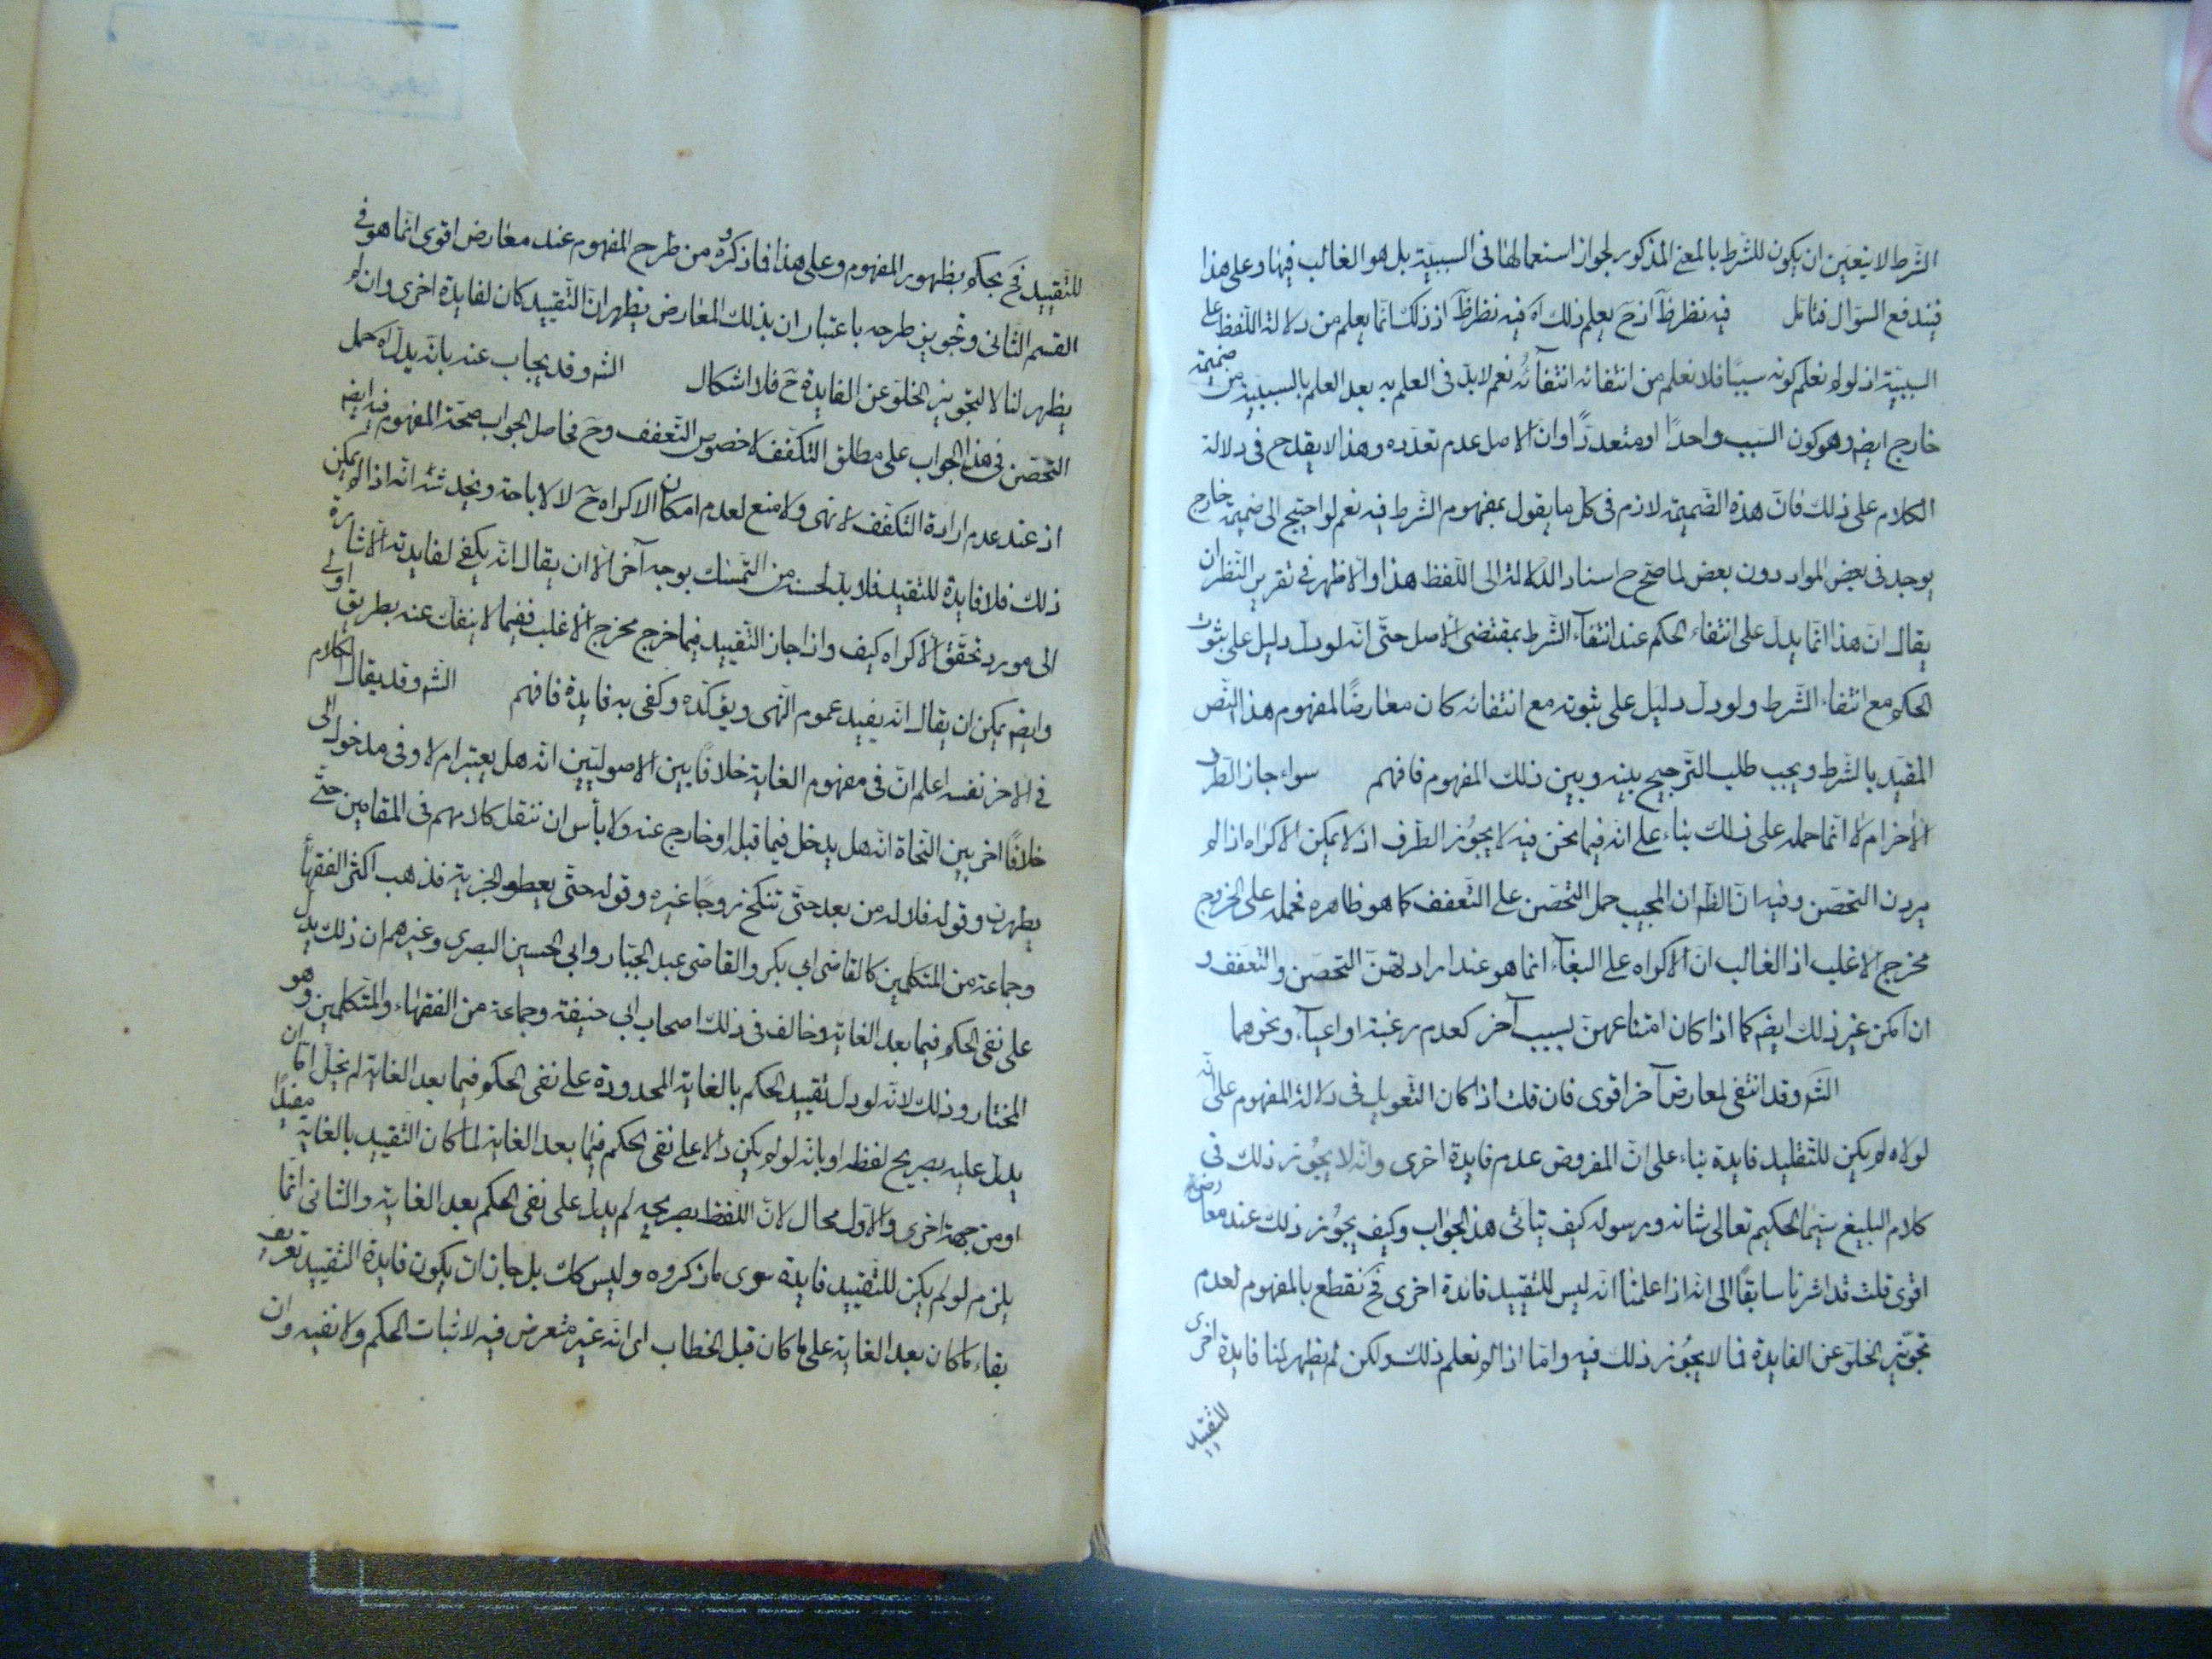 الشرط لا يتعين ان يكون للشرط بالمعنى المذكور لجواز استعمالها فى السببية بل هو الغالب فيها وعلى هذا
فيندفع السؤال فتامل فيه نظر ظ اذ ح يعلم ذلك اه فيه نظر ظ اذ ذلك انما يعلم من دلالة اللفظ على
السببية اذ لو لم نعلم كونه سببا فلا نعلم من انتفائه انتفائه نعم لا بد فى العلم به بعد العلم بالسببية من ضميمة
خارج ايضا وهو كون السبب واحدا او متعددا وان الاصل عدم تعدده وهذا لا يقدح فى دلالة
الكلام على ذلك فان هذه الضميمة لازم فى كل ما يقول بمفهوم الشرط فيه نعم لو احتيج الى ضميمة خارج
يوجد فى بعض المواد دون بعض لما صح ح اسناد الدلالة الى اللفظ هذا والاظهر فى تقرير النظر ان
يقال ان هذا انما يدل على انتفاء الحكم عند انتفاء الشرط بمقتضى الاصل حتى انه لو دل دليل على ثبوت
الحكم مع انتفاء الشرط ولو دل دليل على ثبوته مع انتفائه كان معارضا لمفهوم هذا النص
المقيد بالشرط ويجب طلب الترجيح بينه وبين ذلك المفهوم فافهم سواء جاز الطرف
الاخر ام لا انما حمله على ذلك بناء على انه فيما نحن فيه لا يجوز الطرف اذ لا يمكن الاكراه اذا لم
يردن التحصن وفيه ان الظ ان المجيب حمل التحصن على التعفف كما هو ظاهره فحمله على الخروج
مخرج الاغلب اذ الغالب ان الاكراه على البغاء انما هو عند ارادتهن التحصن والتعفف و
ان امكن غير ذلك ايضا كما اذا كان امتناعهن لسبب آخر كعدم رغبة او اعياء ونحوهما
الش وقد انتفى لمعارض آخر اقوى فان قلت اذا كان التعويل فى دلالة المفهوم على انه
لولاه لم يكن للتقليد فايدة بناء على ان المفروض عدم فايدة اخرى وانه لا يجوز ذلك فى
كلام البليغ سيما الحكيم تعالى شانه ورسوله كيف يتاتى هذا الجواب وكيف يجوز ذلك عند معارضة
اقوى قلت قد اشرنا سابقا الى انه اذا علمنا انه ليس للتقييد فائدة اخرى فح نقطع بالمفهوم لعدم
تجويز الخلو عن الفايدة فما لا يجوز ذلك فيه واما اذا لم نعلم ذلك ولكن لم يظهر لنا فايدة اخرى
للتقييد
للتقييد فح بحكم بظهور المفهوم وعلى هذا فما ذكروه من طرح المفهوم عند معارض اقوى انما هو فى
القسم الثانى وتجويز طرحه باعتبار ان بذلك المعارض يظهر ان التقييد كان لفايدة اخرى وان لم
يظهر لنا لا لتجويز الخلو عن الفايدة ح فلا اشكال الش وقد يجاب عنه بانه يدل اه حمل
التحصن فى هذا الجواب على مطلق التكفف لا خصوص التعفف وح فحاصل الجواب صحة المفهوم فيه ايضا
اذ عند عدم ارادة التكفف لا نهى ولا منع لعدم امكان الاكراه ح لا لاباحته ويخدشه انه اذا لم يمكن
ذلك فلا فايدة للتقييد فلا بد لحسنه من التمسك بوجه آخر الا ان يقال انه يكفى لفايدته الاشارة
الى مورد تحقق الاكراه كيف واذا جاز التقييد فيما خرج مخرج الاغلب ففيما لا ينفك عنه بطريق اولى
وايضا يمكن ان يقال انه يفيد عموم النهى ويؤكده وكفى به فايدة فافهم الش وقد يقال الكلام
فى الاخر نفسه اعلم ان فى مفهوم الغاية خلافا بين الاصوليين انه هل يعتبر ام لا وفى مدخول الى
خلافا اخر بين النحاة انه هل يدخل فيما قبل او خارج عنه ولا بأس ان ننقل كلامهم فى المقامين حتى
يطهرن وقوله فلا له من بعد حتى تنكح زوجا غيره وقوله حتى يعطو الجزية فذهب اكثر الفقهاء
وجماعة من المتكلمين كالقاضى ابى بكر والقاضى عبد الجبار وابى الحسين البصرى وغيرهم ان ذلك يدل
على نفى الحكم فيما بعد الغاية وخالف فى ذلك اصحاب ابى حنيفة وجماعة من الفقهاء والمتكلمين وهو
المختار وذلك لانه لو دل تقييد الحكم بالغاية المحدودة على نفى الحكم فيما بعد الغاية لم يخل اما ان
يدل عليه بصريح لفظه او بانه لو لم يكن دالا على نفى الحكم فيما بعد الغاية لما كان التقييد بالغاية مفيدا
او من جهة اخرى والاول محال لان اللفظ بصريحه لم يدل على نفى الحكم بعد الغاية والثانى انما
يلزم لو لم يكن للتقييد فايدة سوى ما ذكروه وليس كك بل جاز ان يكون فايدة التقييد تعريف
بقاء ما كان بعد الغاية على ما كان قبل الخطاب اى انه غير متعرض فيه لاثبات الحكم ولا نفيه وان